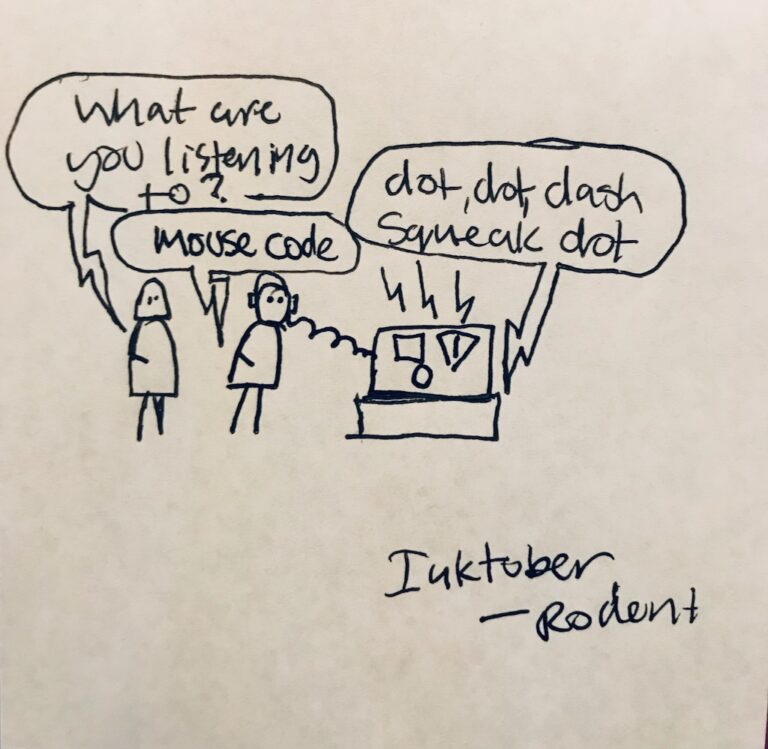 What are
you listening
to?
mouse code
dot, dot, dash
Squeak dot
Inktober
- Rodent